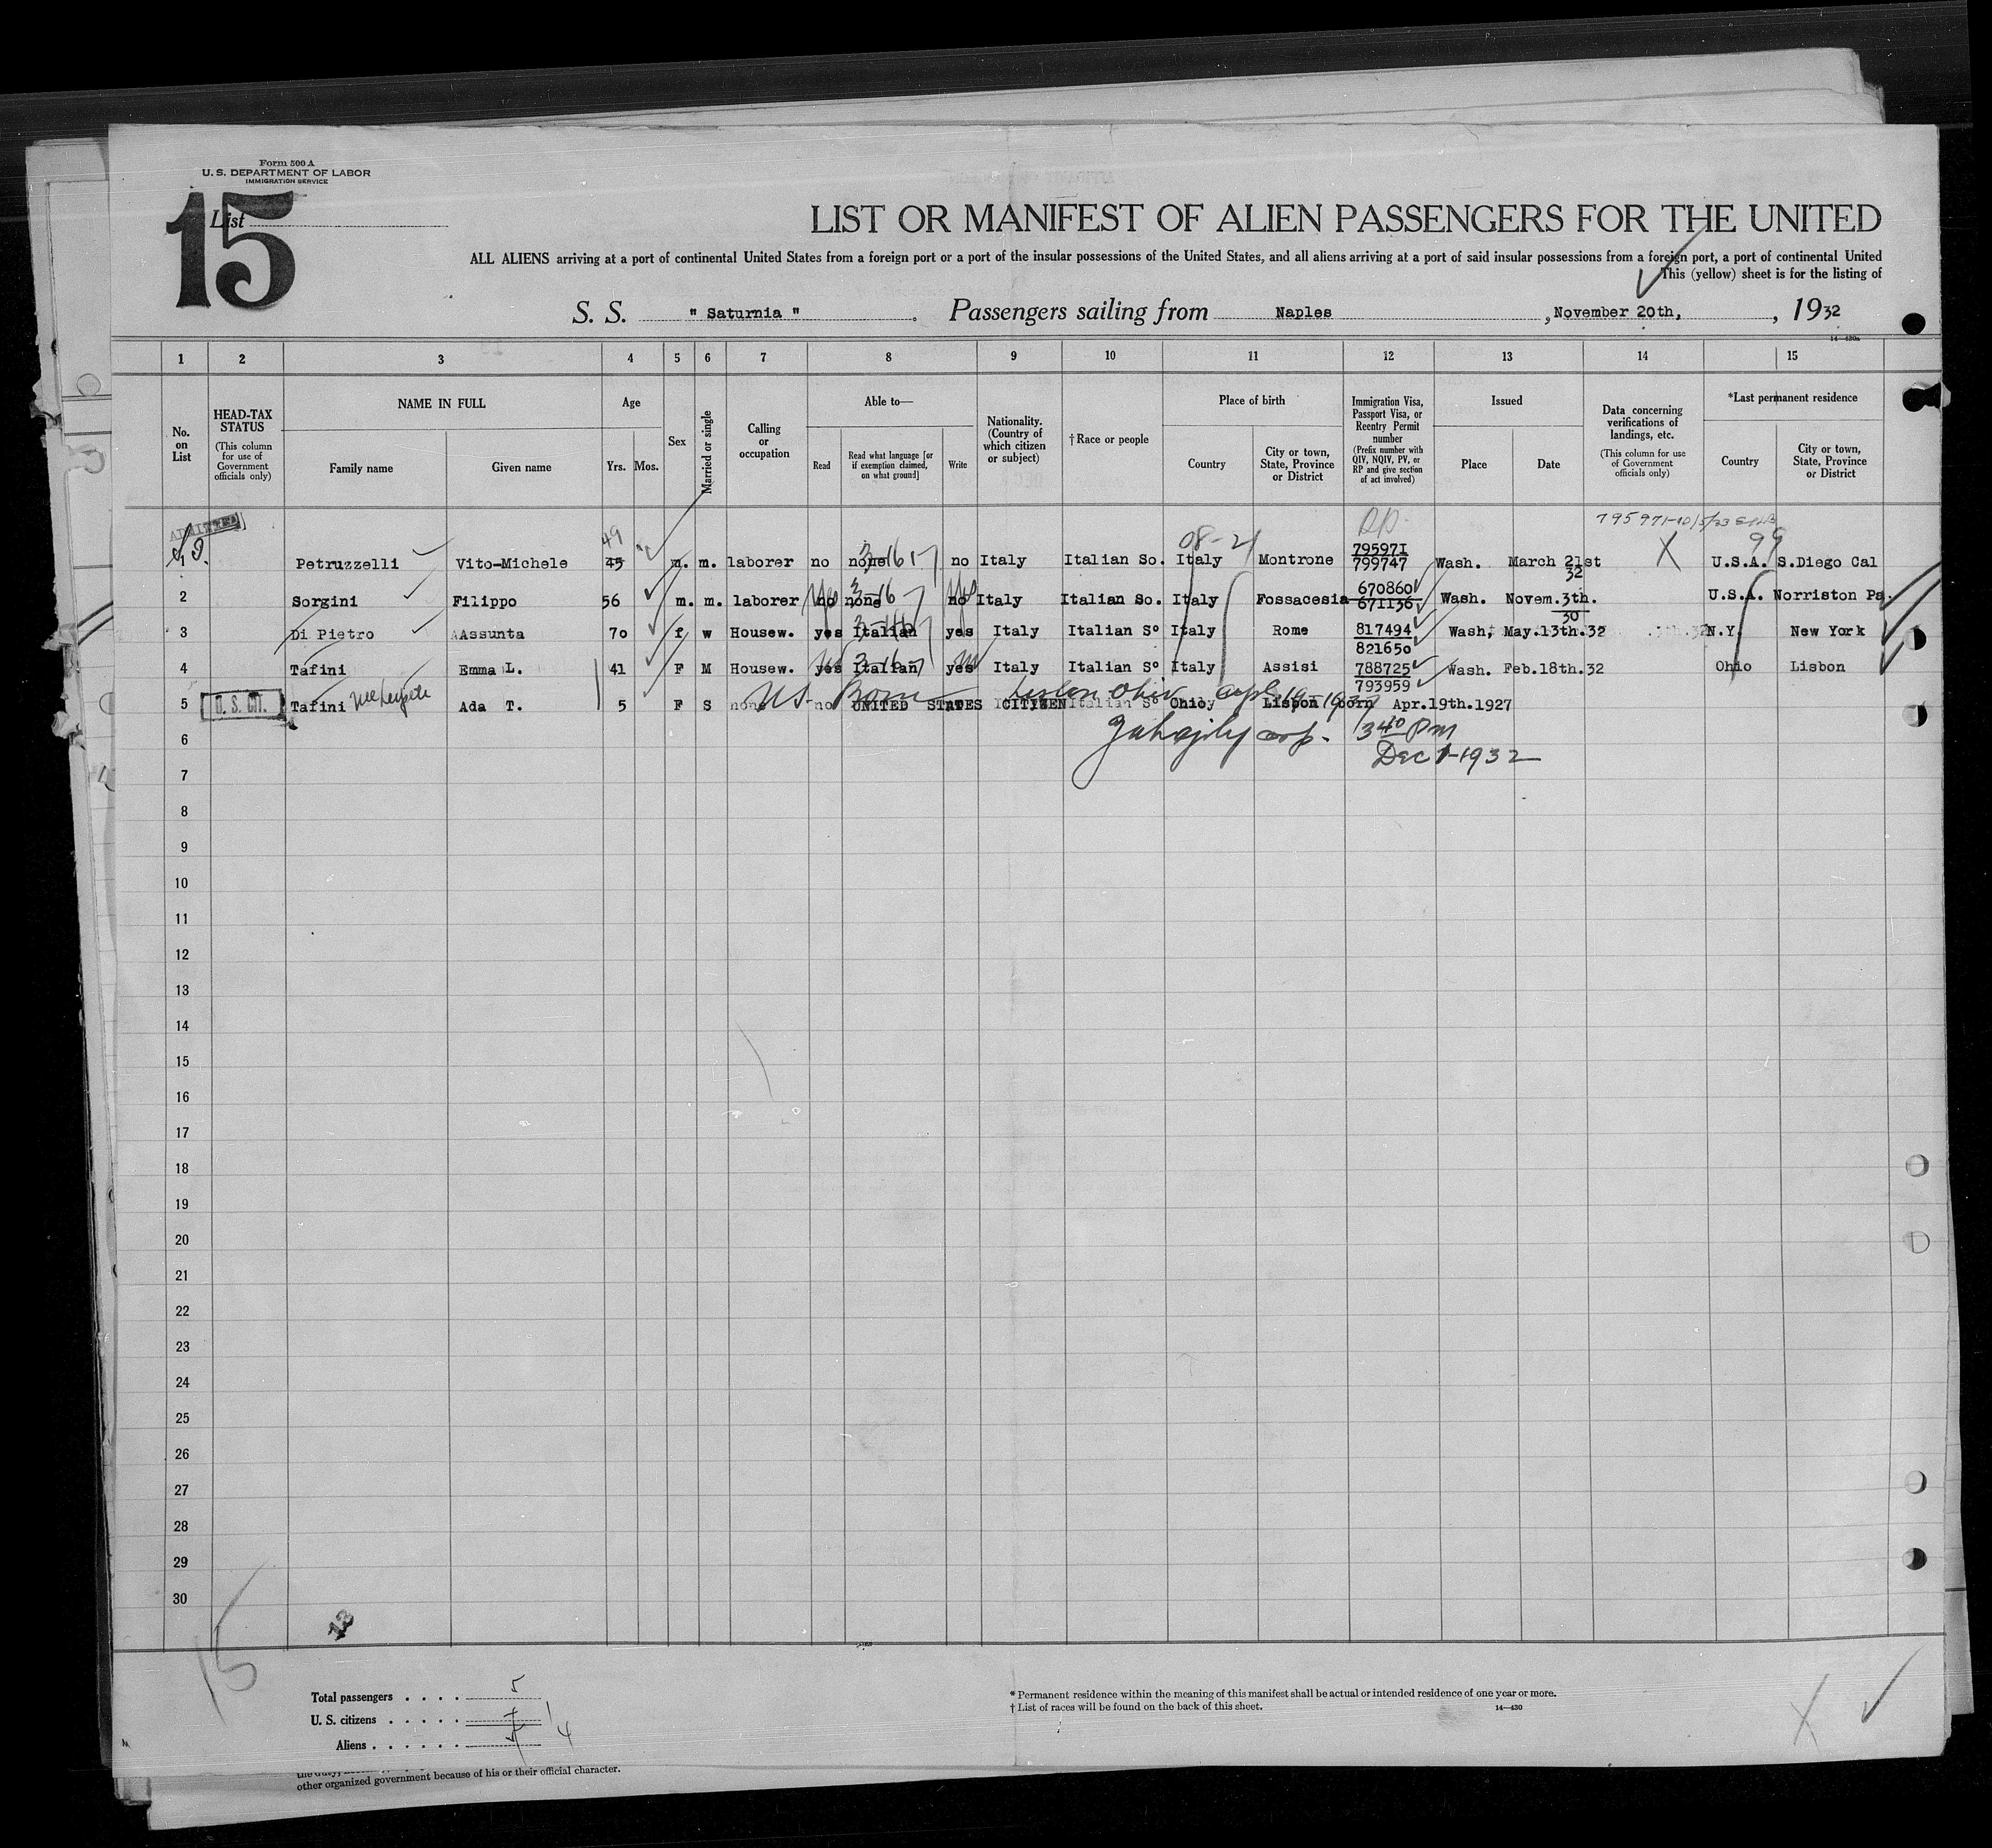 Form 500 A
U. S. DEPARTMENT OF LABOR
IMMIGRATION SERVICE
15
List
LIST OR MANIFEST OF ALIEN PASSENGERS FOR THE UNITED
ALL ALIENS arriving at a port of continental United States from a foreign port or a port of the insular possessions of the United States, and all aliens arriving at a port of said insular possessions from a foreign port, a port of continental United
This (yellow) sheet is for the listing of
S. S. " Saturnia " . Passengers sailing from Naples , November 20th, , 1932
14—430a
1 2 3 4 5 6 7 8 9 10 11 12 13 14 15
No. on List
HEAD-TAX STATUS (This column for use of Government officials only)
NAME IN FULL
Family name Given name
Age
Yrs. Mos.
Sex
Married or single
Calling or occupation
Able to—
Read Read what language [or if exemption claimed, on what ground] Write
Nationality. (Country of which citizen or subject)
†Race or people
Place of birth
Country City or town, State, Province or District
Immigration Visa, Passport Visa, or Reentry Permit number (Prefix number with QIV, NQIV, PV, or RP and give section of act involved)
Issued
Place Date
Data concerning verifications of landings, etc. (This column for use of Government officials only)
*Last permanent residence
Country City or town, State, Province or District
ADMITTED
49 08-21 RP 795971-10/5/33 99
Petruzzelli Vito-Michele 45 m. m. laborer no none no Italy Italian So. Italy Montrone 795971 799747 Wash. March 21st 32 X U.S.A. S.Diego Cal
2 Sorgini Filippo 56 m. m. laborer no none no Italy Italian So. Italy Fossacesia 670860 671136 Wash. Novem.3th. 30 U.S.A. Norriston Pa.
3 Di Pietro AAssunta 70 f w Housew. yes Italian yes Italy Italian So Italy Rome 817494 821650 Wash, May.13th.32 N.Y. New York
4 Tafini Emma L. 41 F M Housew. yes Italian yes Italy Italian So Italy Assisi 788725 793959 Wash. Feb.18th.32 Ohio Lisbon
U.S. Born Lisbon Ohio
5 U. S. CIT. Tafini Ada T. 5 F S none no UNITED STATES CITIZEN Italian So Ohio Lisbon born Apr.19th.1927
6 3 40 PM
Dec 1-1932
7
8
9
10
11
12
13
14
15
16
17
18
19
20
21
22
23
24
25
26
27
28
29
30
15
Total passengers . . . . 5
U. S. citizens . . . . . 1
Aliens . . . . . . 4
* Permanent residence within the meaning of this manifest shall be actual or intended residence of one year or more.
† List of races will be found on the back of this sheet.
14—430
X
other organized government because of his or their official character.